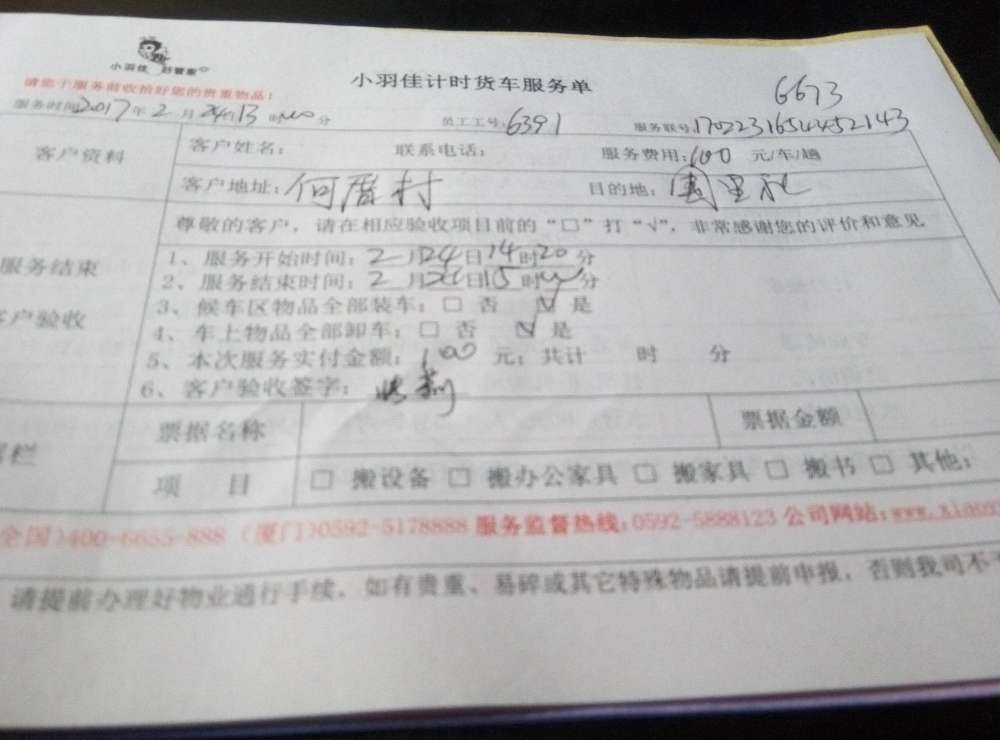 小羽佳 好管家
小羽佳计时货车服务单
6673
请您于服务前收拾好您的贵重物品!
服务时间:2017年2月24日13时00分 员工工号:6391 服务联号:1702231654452143
客户资料
客户姓名: 联系电话: 服务费用:100元/车/趟
客户地址:何厝村 目的地:
尊敬的客户,请在相应验收项目前的“□”打“√”,非常感谢您的评价和意见
服务结束
客户验收
1、服务开始时间:2月24日14时20分
2、服务结束时间:2月24日15时00分
3、候车区物品全部装车:□ 否 ☑ 是
4、车上物品全部卸车:□ 否 ☑ 是
5、本次服务实付金额:100元;共计 时 分
6、客户验收签字:
栏
票据名称 票据金额
项 目 □ 搬设备 □ 搬办公家具 □ 搬家具 □ 搬书 □ 其他:
全国)400-6655-888 (厦门)0592-5178888 服务监督热线:0592-5888123 公司网站:www.xiao
请提前办理好物业通行手续,如有贵重、易碎或其它特殊物品请提前申报,否则我司不